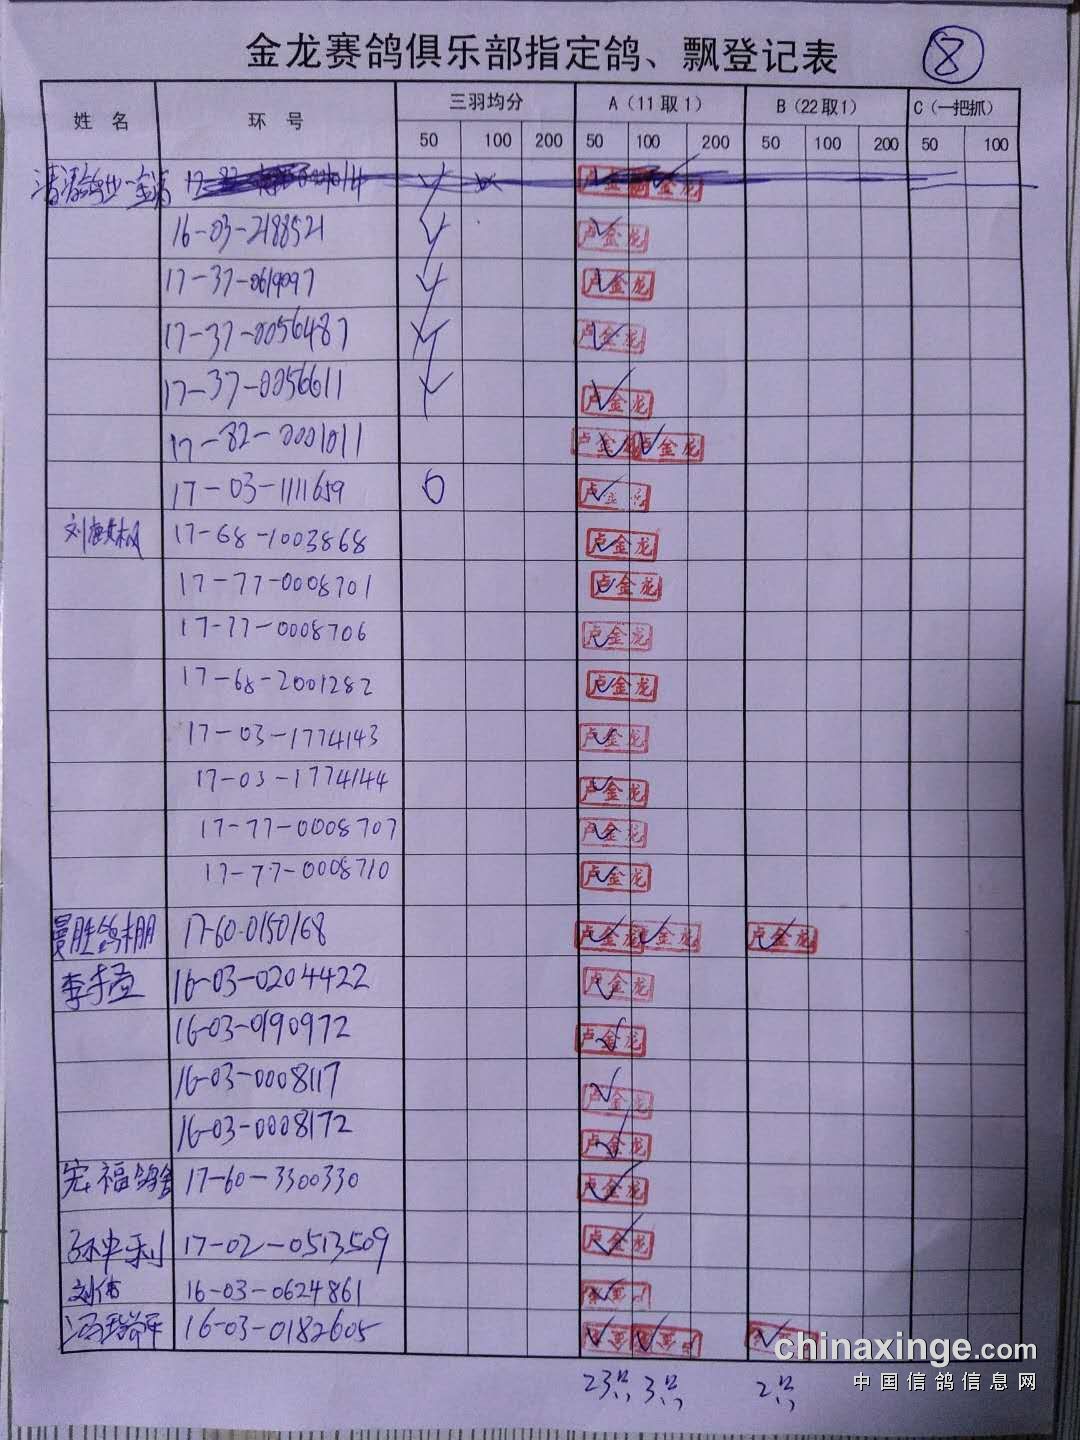 金龙赛鸽俱乐部指定鸽、飘登记表
8
姓 名 环 号 三羽均分 A（11取1） B（22取1） C（一把抓）
50 100 200 50 100 200 50 100 200 50 100
16-03-2188521 卢金龙
17-37-0619097 卢金龙
17-37-0056487 卢金龙
17-37-0056611 卢金龙
17-82-0001011 卢金龙 卢金龙
17-03-1111659
17-68-1003868 卢金龙
17-77-0008701 卢金龙
17-77-0008706 卢金龙
17-68-2001282 卢金龙
17-03-1774143 卢金龙
17-03-1774144 卢金龙
17-77-0008707 卢金龙
17-77-0008710 卢金龙
17-60-0150168 卢金龙 卢金龙 卢金龙
16-03-0204422 卢金龙
16-03-0190972 卢金龙
16-03-0008117 卢金龙
16-03-0008172 卢金龙
宏福鸽舍 17-60-3300330 卢金龙
17-02-0513509 卢金龙
刘伟 16-03-0624861
16-03-0182605
23只 3只 2只
chinaxinge.com
中国信鸽信息网